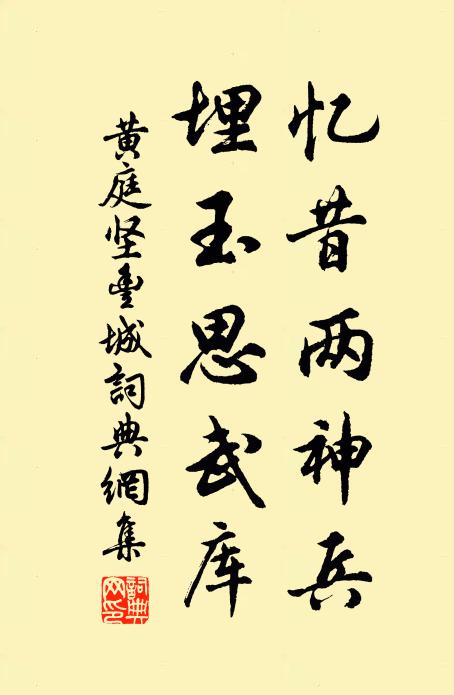 忆昔两神兵
埋玉思武库
黄庭坚豊城詞典網集
詞典网印